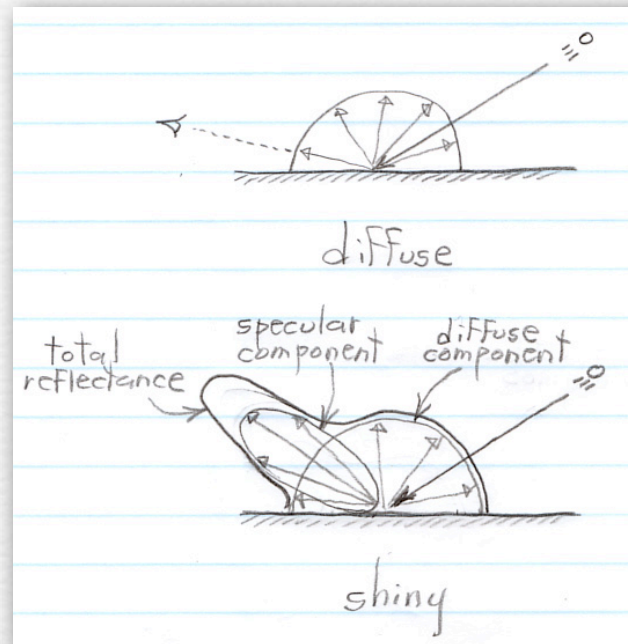 diffuse
total
reflectance
specular
component
diffuse
component
shiny